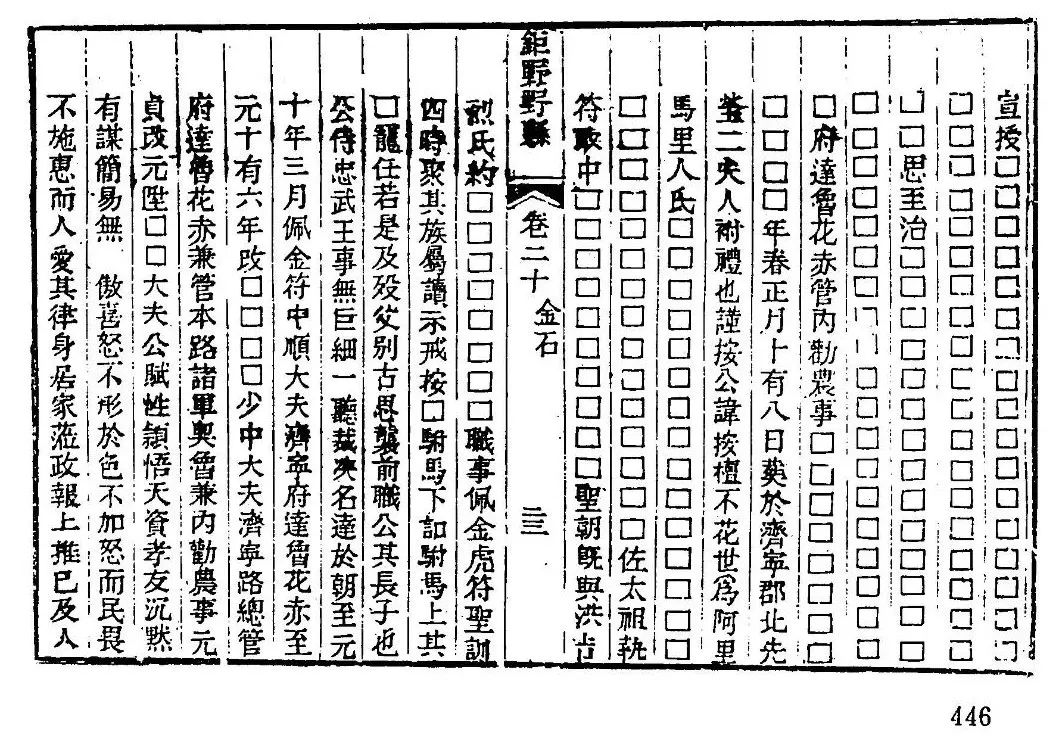 宣授□□□□□□□□□□□□□□□□□
□□□□□□□□□□□□□□□□□□□
□□思至治□□□□□□□□□□□□□□
□□□□□□□□□□□□□□□□□□□
□府達魯花赤管內勸農事□□□□□□□□
□□□□年春正月十有八日葬於濟寧郡北先
塋二夫人祔禮也謹按公諱按檀不花世爲阿里
馬里人氏□□□□□□□□□□□□□□□
□□□□□□□□□□□□□□□佐太祖執
符中□□□□□□□□□□聖朝旣興洪吉
鉅野野縣
卷二十 金石
二三
烈氏約□□□□□□□□職事佩金虎符聖訓
四時聚其族屬讀示戒按□駙馬下詔駙馬上其
□寵任若是及歿父别古思襲前職公其長子也
公侍忠武王事無巨細一聽裁决名達於朝至元
十年三月佩金符中順大夫濟寧府達魯花赤至
元十有六年改□□□□少中大夫濟寧路總管
府達魯花赤兼管本路諸軍奧魯兼內勸農事元
貞改元陞□□大夫公賦性穎悟天資孝友沉黙
有謀簡易無 傲喜怒不形於色不加怒而民畏
不施惠而人愛其律身居家蒞政報上推已及人
446